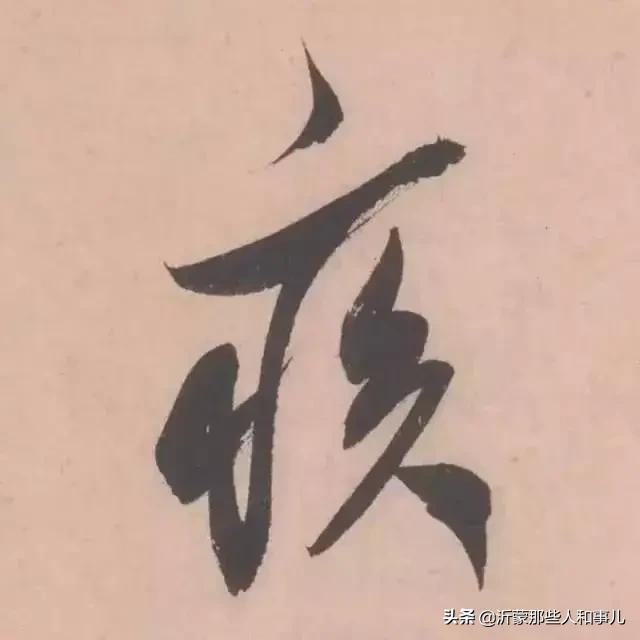 疾
头条 @沂蒙那些人和事儿